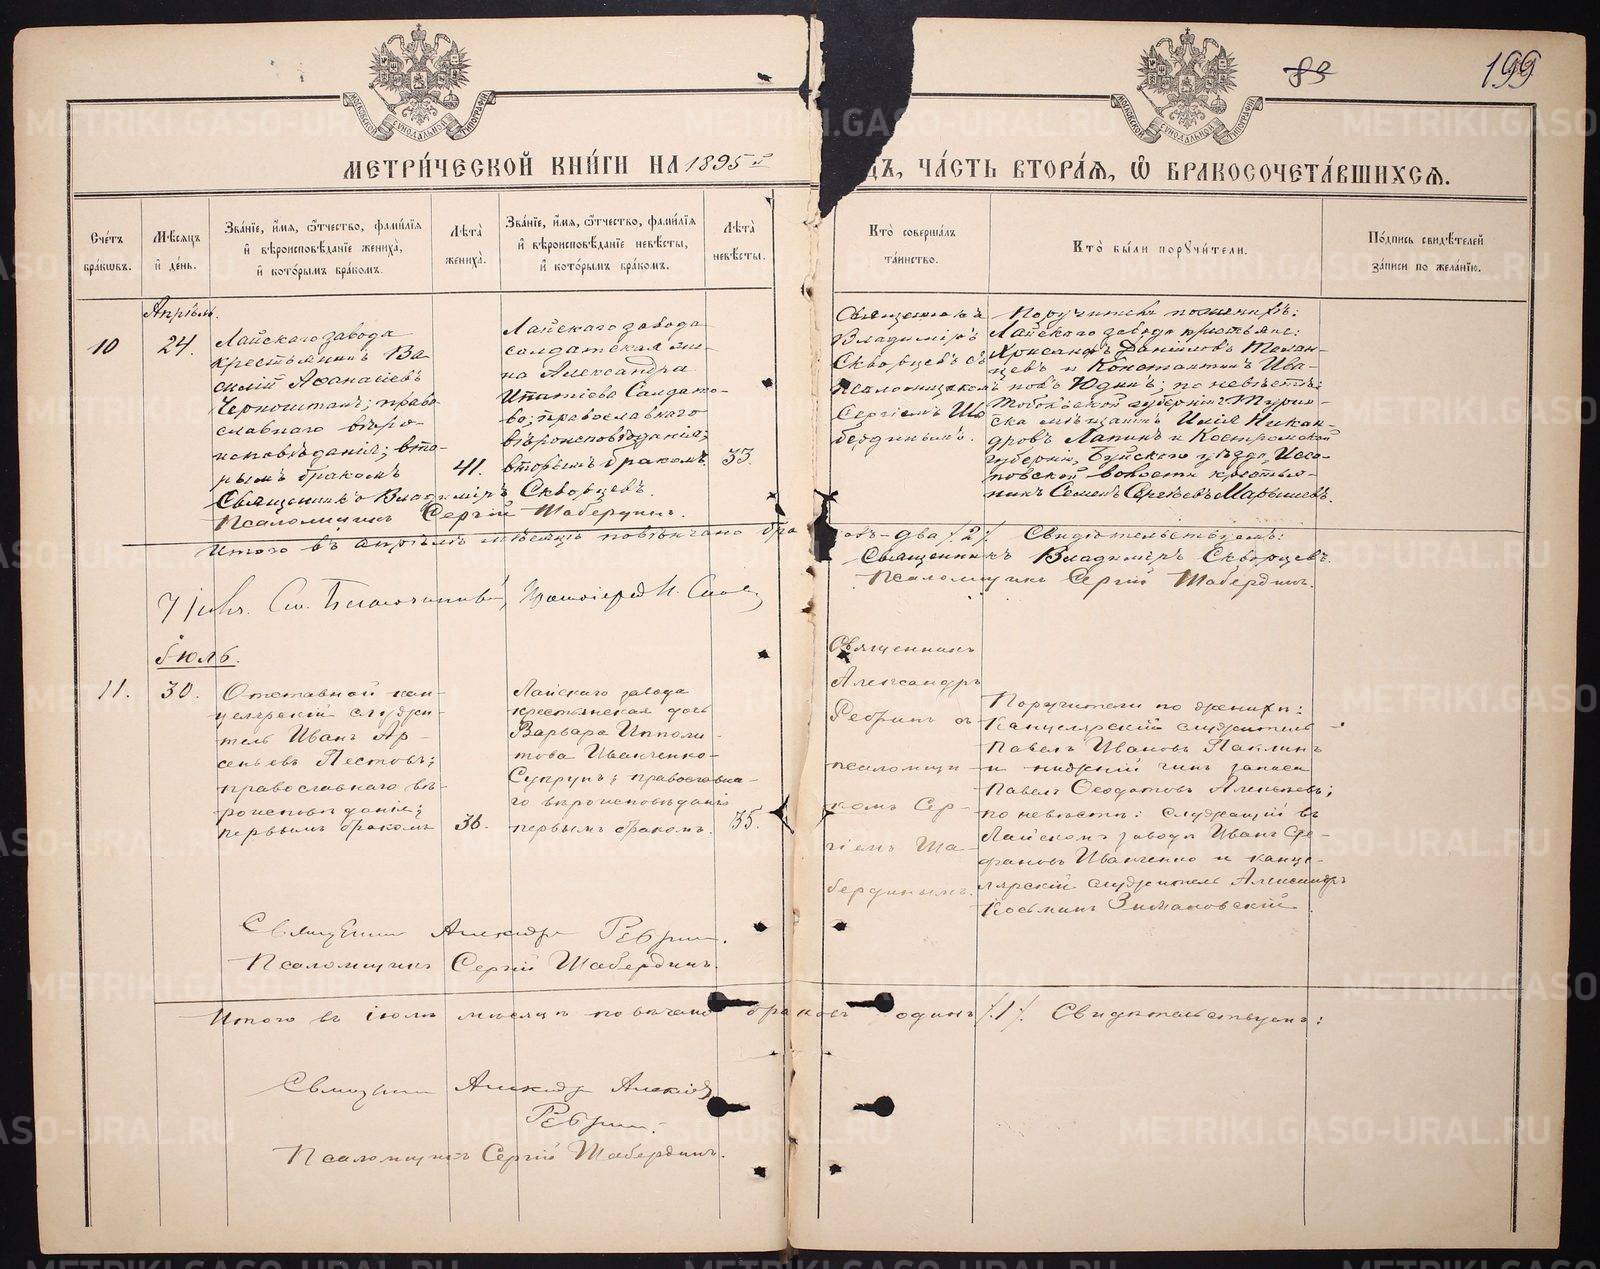 83
199
МОСКОВСКОЙ СѴНОДАЛЬНОЙ ТИПОГРАФІИ
МОСКОВСКОЙ СѴНОДАЛЬНОЙ ТИПОГРАФІИ
МЕТРИ́ЧЕСКОЙ КНИ́ГИ НА 1895 й
ДЪ, ЧА́СТЬ ВТОРА́Я, Ѽ БРАКОСОЧЕТА́ВШИХСЯ.
Сче́тъ
бра́кѡвъ.
Мѣ́сяцъ
и҆ де́нь.
Зва́нїе, и҆́мя, ѻ҆́тчество, фами́лїя
и҆ вѣроисповѣ́данїе жениха̀,
и҆ кото́рымъ бра́комъ.
Лѣ́та
жениха̀.
Зва́нїе, и҆́мя, ѻ҆́тчество, фами́лїя
и҆ вѣроисповѣ́данїе невѣ́сты,
и҆ кото́рымъ бра́комъ.
Лѣ́та
невѣ́сты.
Кто̀ соверша́лъ
та́инство.
Кто̀ бы́ли порꙋчи́тели.
По́дпись свидѣ́телей
за́писи по жела́нїю.
Апрѣль.
10
24.
Лайскаго завода
крестьянинъ Ва-
силій Аѳанасіевъ
Черноштанъ; право
славнаго вѣро-
исповѣданія; вто-
рымъ бракомъ
41.
Лайскаго завода
солдатская же-
на Александра
Ипатіева Солдато-
ва; православнаго
вѣроисповѣданія;
вторымъ бракомъ.
33.
Священникъ
Владиміръ
Скворцевъ съ
псаломщикомъ
Сергіемъ Ша
бердинымъ.
Поручители по женихѣ:
Лайскаго завода крестьяне:
Хрисанфъ Даниловъ
цевъ и Константинъ Ива-
новъ Юдинъ; по невѣстѣ:
Тобольской губерніи Турин-
ска мѣщанинъ Илія Никан-
дровъ Лапинъ и Костромской
губерніи, Буйскаго уѣзда,
повской волости крестья-
нинъ Семенъ Сергѣевъ Марышевъ.
Священникъ Владиміръ Скворцевъ.
Псаломщикъ Сергій Шабердинъ.
Итого въ апрѣлѣ мѣсяцѣ повѣнчано бра ковъ - два /2/. Свидѣтельствуемъ:
Священникъ Владиміръ Скворцевъ.
Псаломщикъ Сергій Шабердинъ.
Іюль.
11.
30.
Отставной кан-
целярскій служи-
тель Иванъ Ар-
сеньевъ Пестовъ;
православнаго вѣ-
роисповѣданія;
первымъ бракомъ
36.
Лайскаго завода
крестьянская дочь
Варвара Ипполи-
това Иванченко-
Супрунъ; православна-
го вѣроисповѣданія
первымъ бракомъ.
35.
Священникъ
Александръ
Ребринъ съ
псаломщи-
комъ Сер-
гіемъ Ша-
бердинымъ.
Поручители по женихѣ:
Канцелярскій служитель
Павелъ Ивановъ Паклинъ
и нижній чинъ запаса
Павелъ Ѳеодотовъ Алексѣевъ;
по невѣстѣ: служащій въ
Лайскомъ заводѣ Иванъ Сте-
фановъ Иванченко и канце-
лярскій служитель Александръ
Косьминъ Зимановскій.
Священникъ Александръ Ребринъ.
Псаломщикъ Сергій Шабердинъ.
Итого въ іюлѣ мѣсяцѣ повѣнчано браковъ одинъ /1/. Свидѣтельствуемъ:
Священникъ Александръ Алексѣевъ
Ребринъ.
Псаломщикъ Сергій Шабердинъ.
METRIKI.GASO-URAL.RU